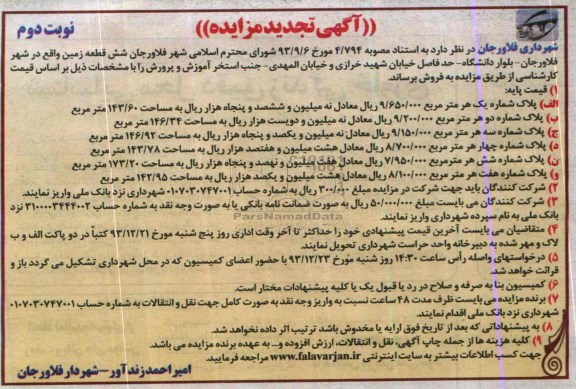 ((آگهی تجدید مزایده))
نوبت دوم
شهرداری فلاورجان در نظر دارد به استناد مصوبه ۴/۷۹۴ مورخ ۹۳/۹/۶ شورای محترم اسلامی شهر فلاورجان شش قطعه زمین واقع در شهر
فلاورجان- بلوار دانشگاه- حد فاصل خیابان شهید خرازی و خیابان المهدی- جنب استخر آموزش و پرورش را با مشخصات ذیل بر اساس قیمت
کارشناسی از طریق مزایده به فروش برساند.
۱) قیمت پایه:
الف) پلاک شماره یک هر متر مربع ۹/۶۵۰/۰۰۰ ریال معادل نه میلیون و ششصد و پنجاه هزار ریال به مساحت ۱۴۳/۶۰ متر مربع
ب) پلاک شماره دو هر متر مربع ۹/۲۰۰/۰۰۰ ریال معادل نه میلیون و دویست هزار ریال به مساحت ۱۴۶/۳۴ متر مربع
ج) پلاک شماره سه هر متر مربع ۹/۱۵۰/۰۰۰ ریال معادل نه میلیون و یکصد و پنجاه هزار ریال به مساحت ۱۴۶/۹۲ متر مربع
د) پلاک شماره چهار هر متر مربع ۸/۷۰۰/۰۰۰ ریال معادل هشت میلیون و هفتصد هزار ریال به مساحت ۱۴۳/۷۸ متر مربع
ن) پلاک شماره شش هر متر مربع ۷/۹۵۰/۰۰۰ ریال معادل هفت میلیون و نهصد و پنجاه هزار ریال به مساحت ۱۷۳/۲۰ متر مربع
و) پلاک شماره هفت هر متر مربع ۸/۱۰۰/۰۰۰ ریال معادل هشت میلیون و یکصد هزار ریال به مساحت ۱۴۲/۹۵ متر مربع
۲) شرکت کنندگان باید جهت شرکت در مزایده مبلغ ۳۰۰/۰۰۰ ریال به شماره حساب ۰۱۰۷۰۳۰۷۴۷۰۰۱ شهرداری نزد بانک ملی واریز نمایند.
۳) شرکت کنندگان می بایست مبلغ ۵۰/۰۰۰/۰۰۰ ریال به صورت ضمانت نامه بانکی یا به صورت وجه نقد به شماره حساب ۳۱۰۰۰۰۳۴۴۴۰۰۲ نزد
بانک ملی به نام سپرده شهرداری واریز نمایند.
ParsNamadData
۴) متقاضیان می بایست آخرین قیمت پیشنهادی خود را حداکثر تا آخر وقت اداری روز پنج شنبه مورخ ۹۳/۱۲/۲۱ کتباً در دو پاکت الف و ب
لاک و مهر شده به دبیرخانه واحد حراست شهرداری تحویل نمایند.
۵) درخواستهای واصله رأس ساعت ۱۴:۳۰ روز شنبه مورخ ۹۳/۱۲/۲۳ با حضور اعضای کمیسیون که در محل شهرداری تشکیل می گردد باز و
قرائت خواهد شد.
۶) کمیسیون بنا به صرفه و صلاح در رد یا قبول یک یا کلیه پیشنهادات مختار است.
۷) برنده مزایده می بایست ظرف مدت ۴۸ ساعت نسبت به واریز وجه نقد به صورت کامل جهت نقل و انتقالات به شماره حساب ۰۱۰۷۰۳۰۷۴۷۰۰۱
شهرداری نزد بانک ملی اقدام نمایند.
۸) به پیشنهاداتی که بعد از تاریخ فوق ارایه یا مخدوش باشد ترتیب اثر داده نخواهد شد.
۹) کلیه هزینه ها از جمله چاپ آگهی، نقل و انتقالات، ارزش افزوده و... به عهده برنده مزایده می باشد.
جهت کسب اطلاعات بیشتر به سایت اینترنتی www.falavarjan.ir مراجعه فرمایید.
امیر احمد زندآور- شهردار فلاورجان